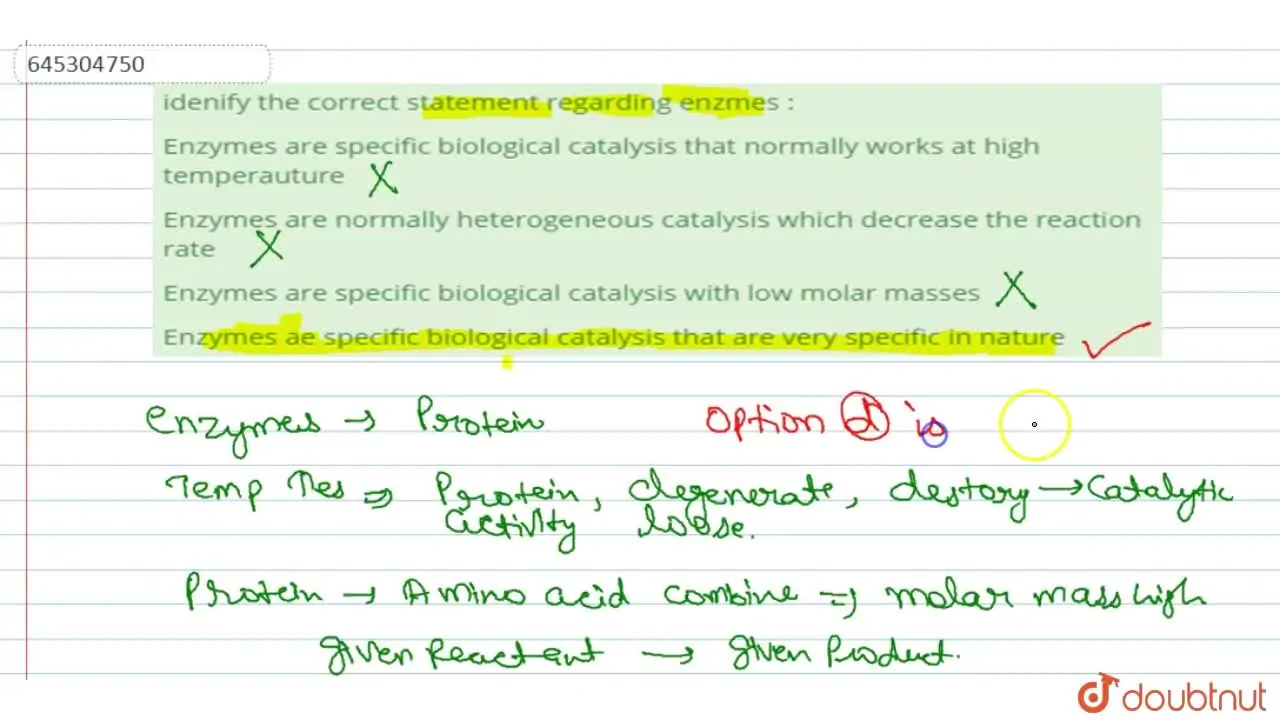 645304750
idenify the correct statement regarding enzmes :
Enzymes are specific biological catalysis that normally works at high
temperauture X
Enzymes are normally heterogeneous catalysis which decrease the reaction
rate X
Enzymes are specific biological catalysis with low molar masses X
Enzymes ae specific biological catalysis that are very specific in nature
Enzymes → Protein Option d is
Temp ↑es ⇒ Protein, degenerate, destory → Catalytic
activity loose.
Protein → Amino acid combine ⇒ molar mass high
given Reactant → given Product.
doubtnut